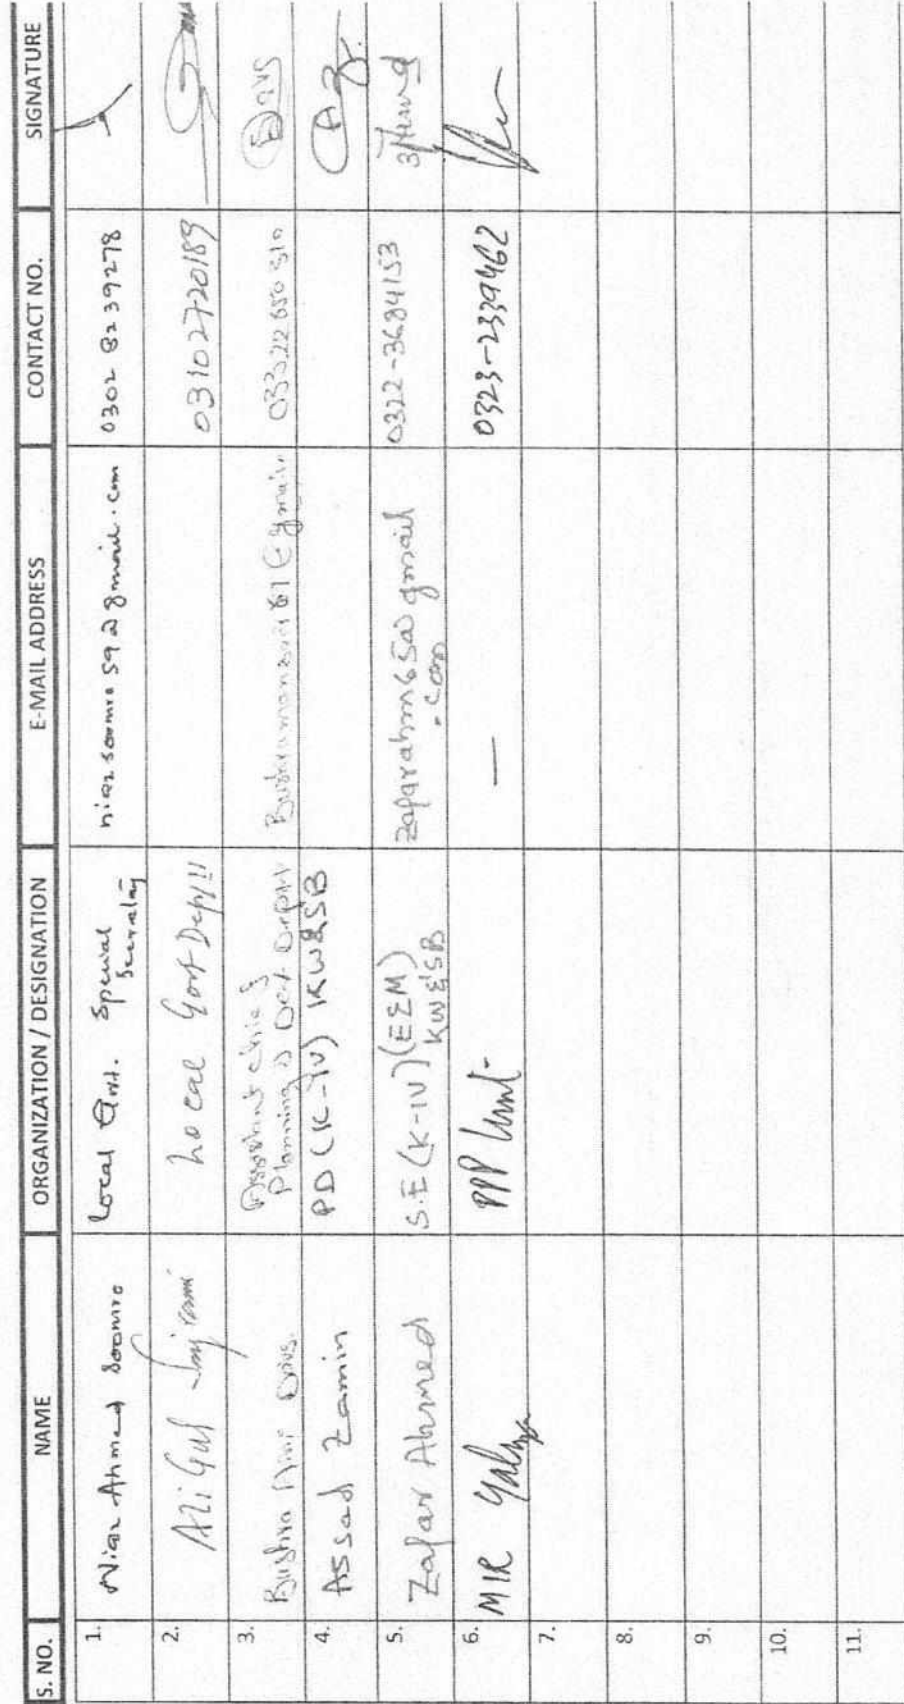 S. NO. NAME ORGANIZATION / DESIGNATION E-MAIL ADDRESS CONTACT NO. SIGNATURE
1. Niaz Ahmed Soomro Local Govt. Special Secretary niaz.soomro59@gmail.com 0302 8239278
2. Ali Gul Local Govt Deptt 03102720189
3. Bushra Das Assistant Chief
Planning & Dev. Deptt
4. Assad Zamin PD (K-IV) KW&SB
5. Zafar Ahmed S.E (K-IV) (E&M) zafarahm65@gmail 0322-3684153
KW&SB .com
6. MIR Yahya PPP Unit - — 0323-2339462
7.
8.
9.
10.
11.